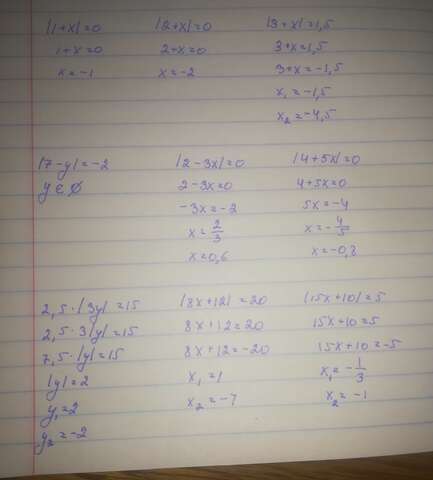 |1+x|=0
1+x=0
x=-1
|2+x|=0
2+x=0
x=-2
|3+x|=1,5
3+x=1,5
3+x=-1,5
x₁=-1,5
x₂=-4,5
|7-y|=-2
y∈∅
|2-3x|=0
2-3x=0
-3x=-2
x=2/3
x=0,6
|4+5x|=0
4+5x=0
5x=-4
x=-4/5
x=-0,8
2,5·|3y|=15
2,5·3|y|=15
7,5·|y|=15
|y|=2
y₁=2
y₂=-2
|8x+12|=20
8x+12=20
8x+12=-20
x₁=1
x₂=-4
|15x+10|=5
15x+10=5
15x+10=-5
x₁=-1/3
x₂=-1